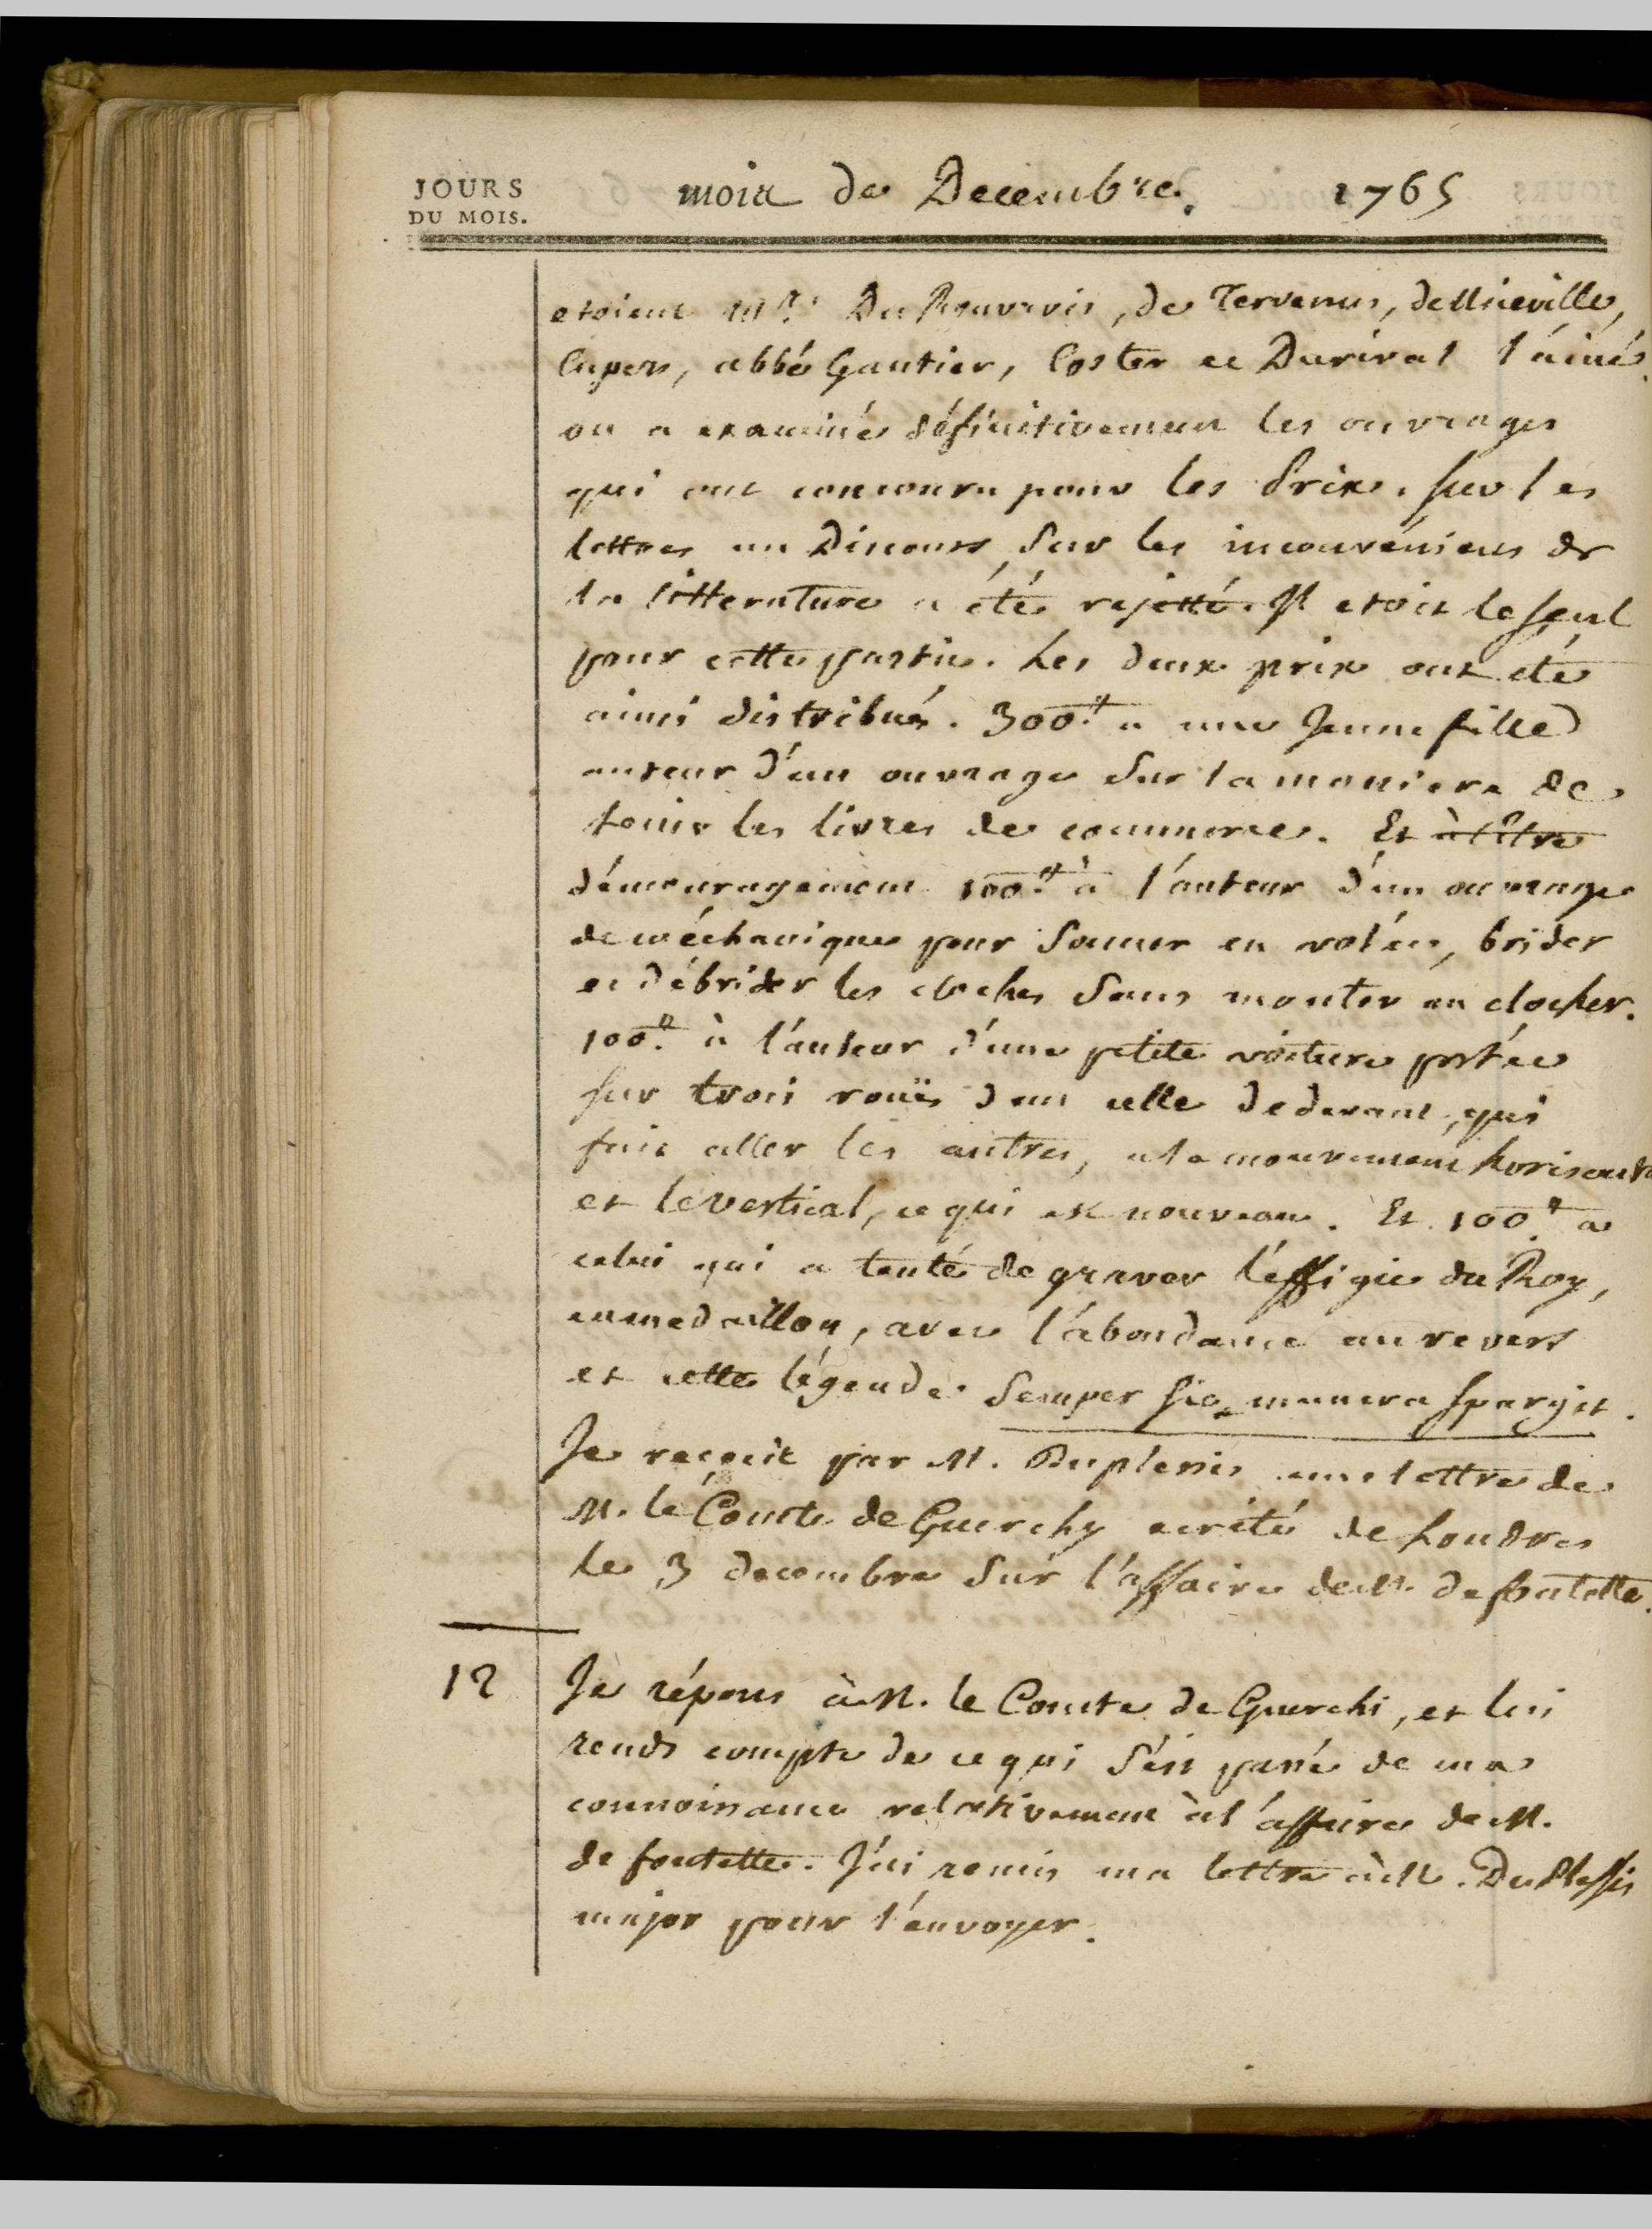 JOURS
DU MOIS.
mois de Decembre. 1765
etoient Mrs. Du Rouvrois, de Tervenus, de Nuieville,
Cupers, abbé Gautier, Coster et Durival l'ainé.
on a examiné définitivement les ouvrages
qui ont concouru pour les Prix. sur les
lettres un Discours sur les inconvéniens de
la litterature a été rejetté. Il etoit le seul
pour cette partie. Les deux prix ont été
ainsi distribués. 300.# a une Jeune fille
auteur d'un ouvrage sur la maniere de
tenir les livres de commerce. Et à titre
d'encouragement 100.# à l'auteur d'un ouvrage
de méchanique pour sonner en volée, brider
et débrider les cloches sans monter au clocher.
100.# à l'auteur d'une petite voiture portée
sur trois roües dont celle de devant, qui
fait aller les autres, a le mouvement horisontal
et le vertical, ce qui est nouveau. Et 100.# a
celui qui a tenté de graver l'effigie du Roy,
en medaillon, avec l'abondance au revers
et cette légende. Semper sic munera spargit.
Je reçois par M. Duplessis une lettre de
M. le Comte de Guerchy ecrite de Londres
le 3 decembre sur l'affaire de M. de fontette.
12 Je répons à M. le Comte de Guerchi, et lui
rends compte de ce qui s'est passé de ma
connoissance relativement à l'affaire de M.
de fontette. J'ai remis ma lettre à M. Du Plessis
major pour l'envoyer.